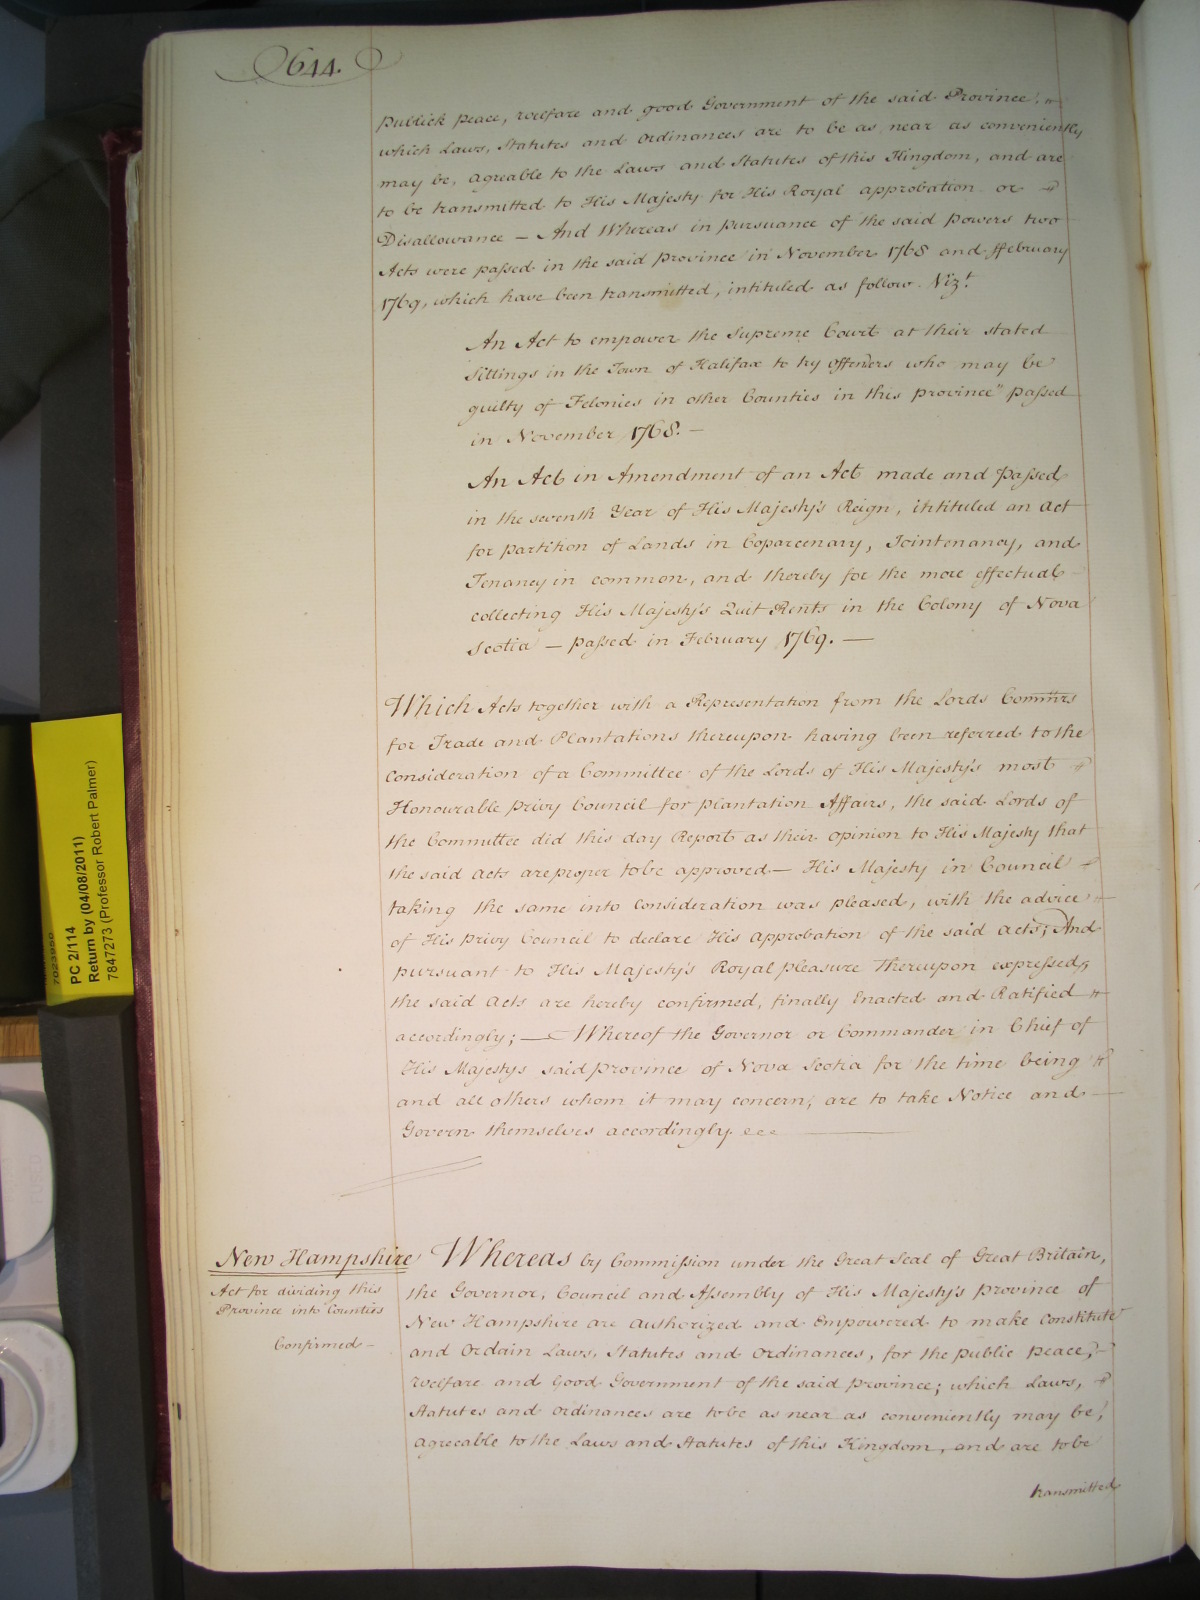 644.
Publick peace, welfare and good Government of the said Province,
which Laws, Statutes and Ordinances are to be as near as conveniently
may be, agreable to the Laws and Statutes of this Kingdom, and are
to be transmitted to His Majesty for His Royal approbation or
Disallowance — And Whereas in pursuance of the said powers two
Acts were passed in the said province in November 1768 and ffebruary
1769, which have been transmitted, intituled as follow. Vizt.
An Act to empower the Supreme Court at their stated
Sittings in the Town of Halifax to try offenders who may be
guilty of Felonies in other Counties in this province" passed
in November 1768. —
An Act in Amendment of an Act made and passed
in the seventh Year of His Majesty's Reign, intituled an Act
for partition of Lands in Coparcenary, Jointenancy, and
Tenancy in common, and thereby for the more effectual
collecting His Majesty's Quit Rents in the Colony of Nova
Scotia — passed in February 1769. —
Which Acts together with a Representation from the Lords Commrs
for Trade and Plantations thereupon having been referred to the
Consideration of a Committee of the Lords of His Majesty's most
Honourable privy Council for plantation Affairs, the said Lords of
the Committee did this day Report as their opinion to His Majesty that
the said acts are proper to be approved — His Majesty in Council
taking the same into consideration was pleased, with the advice
of His privy Council to declare His approbation of the said acts; And
pursuant to His Majesty's Royal pleasure thereupon expressed,
the said acts are hereby confirmed, finally Enacted and Ratified
accordingly; — Whereof the Governor or Commander in Chief of
His Majestys said province of Nova Scotia for the time being
and all others whom it may concern, are to take Notice and
Govern themselves accordingly.
New Hampshire
Act for dividing this
Province into Counties
Confirmed —
Whereas by Commission under the Great Seal of Great Britain,
the Governor, Council and Assembly of His Majesty's province of
New Hampshire are authorized and Empowered to make Constitute
and Ordain Laws, Statutes and Ordinances, for the public peace,
welfare and Good Government of the said province; which Laws,
Statutes and ordinances are to be as near as conveniently may be,
agreeable to the Laws and Statutes of this Kingdom, and are to be
transmitted
PC 2/114
Return by (04/08/2011)
7847273 (Professor Robert Palmer)